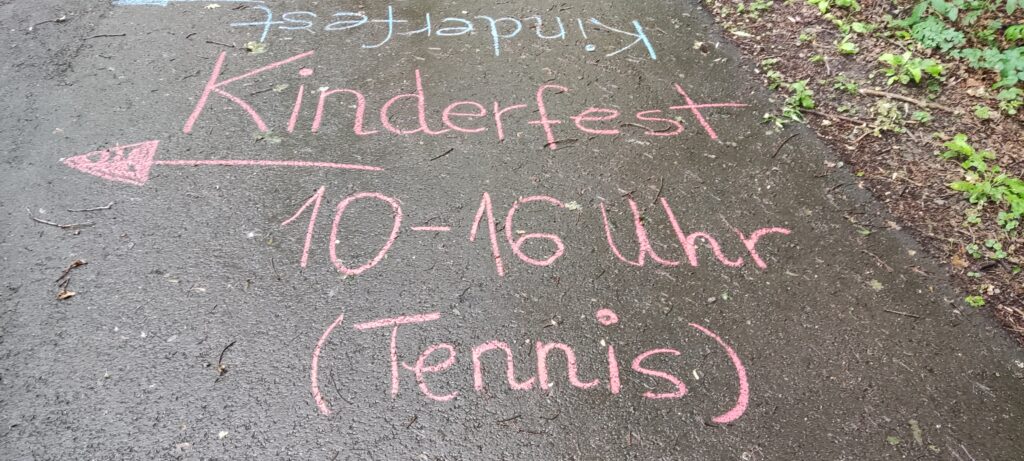 Kinderfest
Kinderfest
10-16 Uhr
(Tennis)